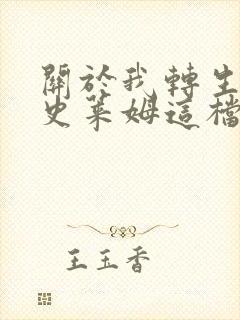 關於我轉生
史萊姆這檔
王玉香